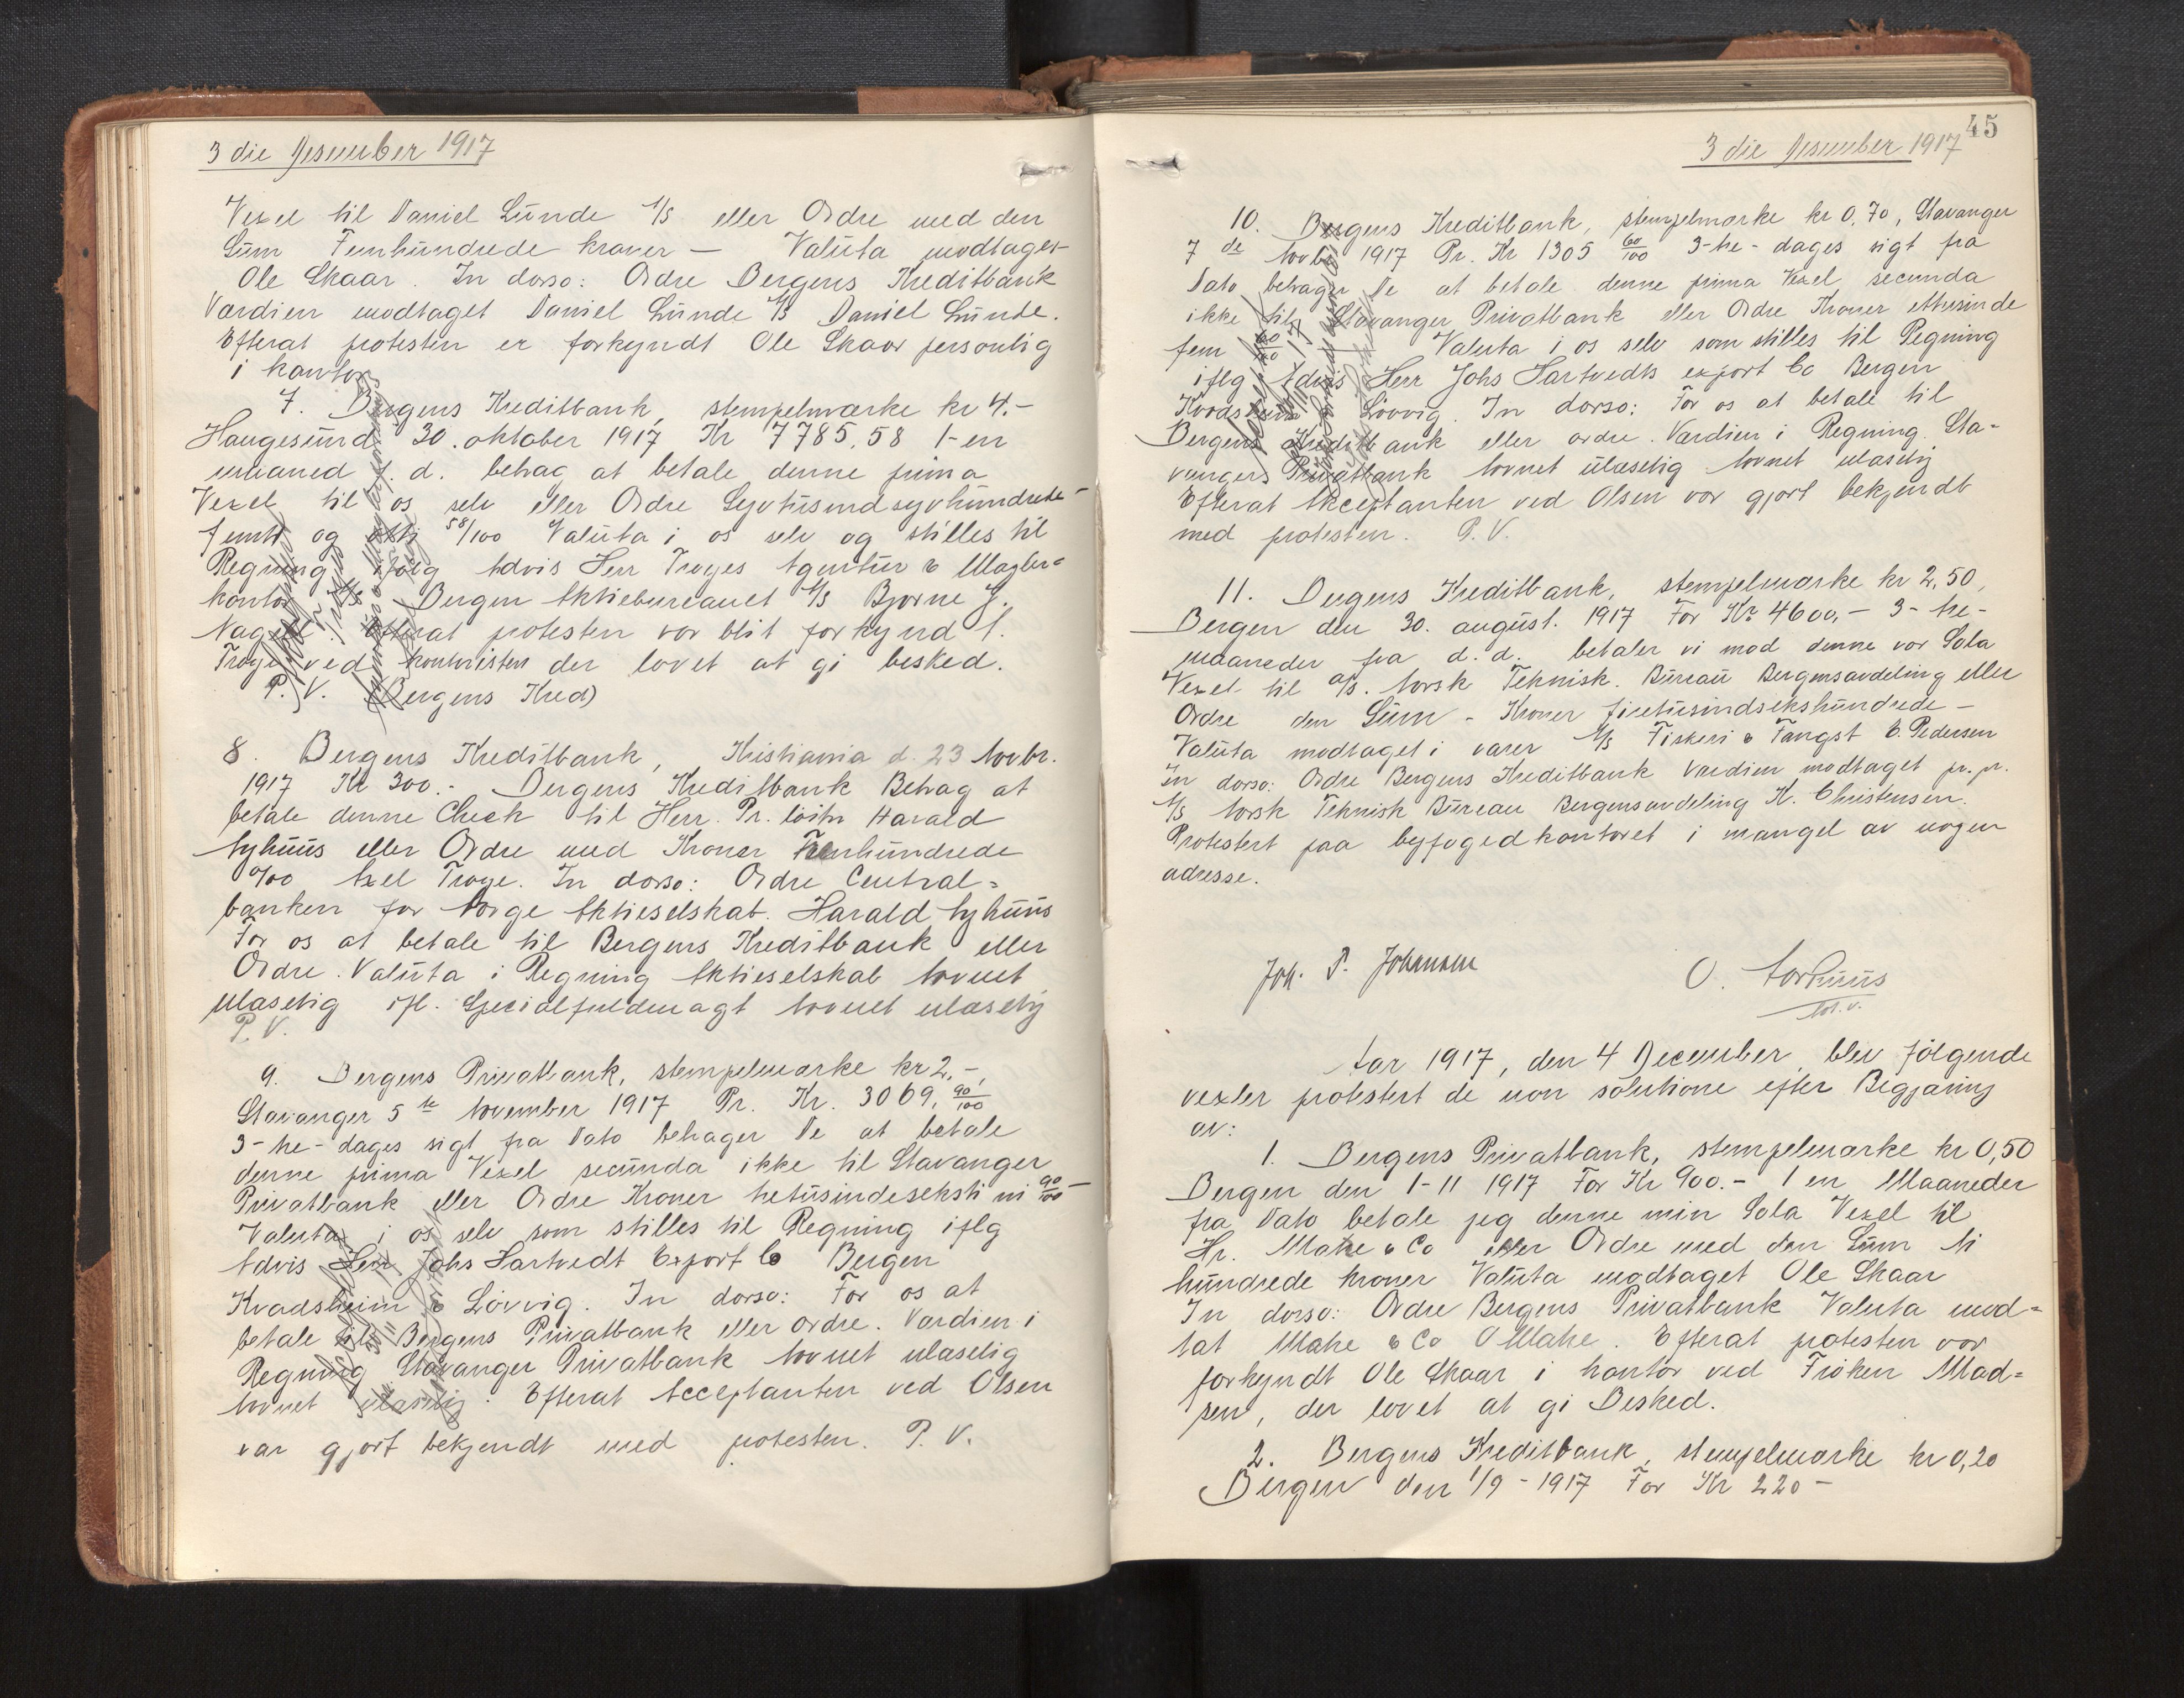 3 die Desember 1917
Vexel til Daniel Lunde A/S eller Ordre med den
Sum Femhundrede kroner — Valuta modtaget
Ole Skaar. In dorso: Ordre Bergens Kreditbank
Værdien modtaget Daniel Lunde A/S Daniel Lunde.
Efterat protesten er forkyndt Ole Skaar personlig
i kontor.
7. Bergens Kreditbank, stempelmærke kr 4.-
Haugesund 30. oktober 1917 Kr 7785,58 1-en
maaned f. d. behag at betale denne prima
Vexel til os selv eller Ordre Syvtusindsyvhundrede-
femti og otti 58/100 Valuta i os selv og stilles til
Regning ifølg Advis Herr Troyes Agentur & Mægler=
kontor Bergen Aktiebureauet A/S Bjarne J.
Efterat protesten var blit forkynd A.
Troye ved kontoristen der lovet at gi besked.
P. V. (Bergens Kred)
8. Bergens Kreditbank, Kristiania d. 23 Novbr.
1917 Kr 300.- Bergens Kreditbank Behag at
betale denne Check til Herr. Pr. løitn Harald
Nyhuus eller Ordre med Kroner Trehundrede
0/00 Axel Troye. In dorso: Ordre Central=
banken for Norge Aktieselskab. Harald Nyhuus
For os at betale til Bergens Kreditbank eller
Ordre. Valuta i Regning Aktieselskab Navnet
ulæselig ifl. Specialfuldmagt Navnet ulæselig
P. V.
9. Bergens Privatbank, stempelmærke kr 2,-,
Stavanger 5te November 1917 Pr. Kr. 3069, 90/100
3-tre-dages sigt fra Dato behager De at betale
denne prima Vexel secunda ikke til Stavanger
Privatbank eller Ordre Kroner tretusindeseksti ni 90/100 —
Valuta i os selv som stilles til Regning iflg
Advis Herr Johs Hartvedt Export Co Bergen
Kvadsheim & Løvvig. In dorso: For os at
betale til Bergens Privatbank eller ordre. Værdien i
Regning Stavanger Privatbank Navnet ulæselig
Navnet ulæselig. Efterat Acceptanten ved Olsen
var gjort bekjendt med protesten. P. V.
45
3 die Desember 1917
10. Bergens Kreditbank, stempelmærke kr 0,70, Stavanger
7 de Novbr 1917 Pr. Kr 1305 60/100 3-tre-dages sigt fra
Dato behager De at betale denne prima Vexel secunda
ikke til Stavanger Privatbank eller Ordre Kroner ettusinde
fem 60/100 Valuta i os selv som stilles til Regning
iflg Advis Herr Johs Hartvedts export Co Bergen
Kvadsheim Løvvig. In dorso: For os at betale til
Bergens Kreditbank eller ordre. Værdien i Regning. Sta=
vanger Privatbank Navnet ulæselig Navnet ulæselig
Efterat Akceptanten ved Olsen var gjort bekjendt
med protesten. P. V.
11. Bergens Kreditbank, stempelmærke kr 2,50,
Bergen den 30. august. 1917 For Kr 4600,- 3-tre-
maaneder fra d. d. betaler vi mod denne vor Sola
Vexel til A/S. Norsk Teknisk. Bureau Bergensavdeling eller
Ordre den Sum - Kroner firetusindsekshundrede —
Valuta modtaget i varer A/S Fiskeri & Fangst E. Pedersen
In dorso: Ordre Bergens Kreditbank Værdien modtaget pr. pr.
A/S Norsk Teknisk Bureau Bergensavdeling K. Christensen.
Protestert paa byfogedkontoret i mangel av nogen
adresse.
Joh. P. Johansen
O. Aarhuus
Aar 1917, den 4 December blev følgende
vexler protestert de non solutione efter Begjæring
av:
1. Bergens Privatbank, stempelmærke kr 0,50
Bergen den 1-11 1917 For Kr 900.- 1 en Maaneder
fra Dato betale jeg denne min Sola Vexel til
Hr. Mahe & Co eller Ordre med den Sum Ni
hundrede kroner Valuta modtaget Ole Skaar
In dorso: Ordre Bergens Privatbank Valuta mod=
tat Mahe & Co O Mahe. Efterat protesten var
forkyndt Ole Skaar i kontor ved Frøken Mad=
sen, der lovet at gi Besked.
2. Bergens Kreditbank, stempelmærke kr 0,20
Bergen den 1/9 - 1917 For Kr 220 —